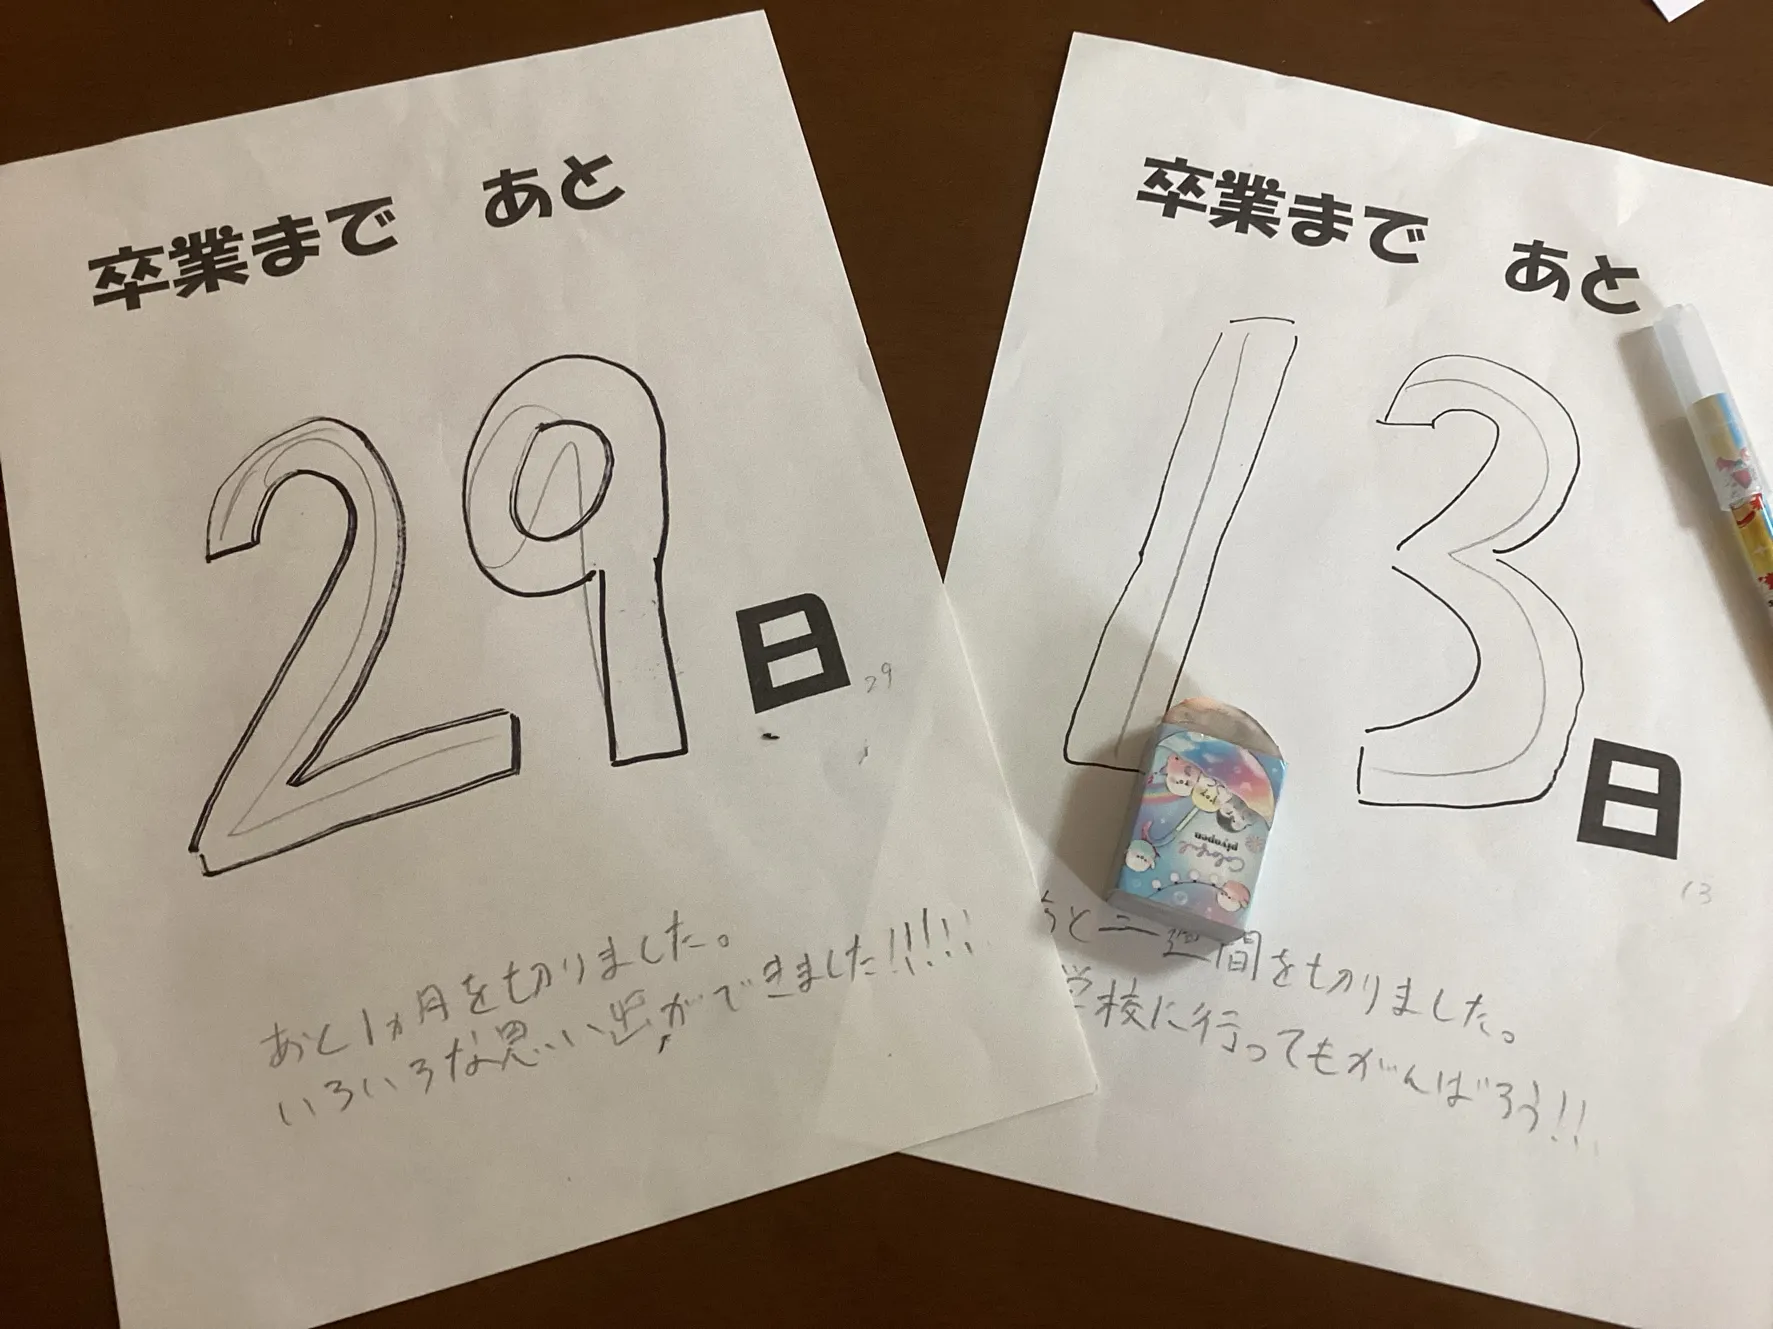 卒業まで あと
29
日
29
あと1ヵ月を切りました。
いろいろな思い出ができました!!!!!
卒業まで あと
13
日
13
あと二週間を切りました。
学校に行ってもがんばろう!!
piyopen